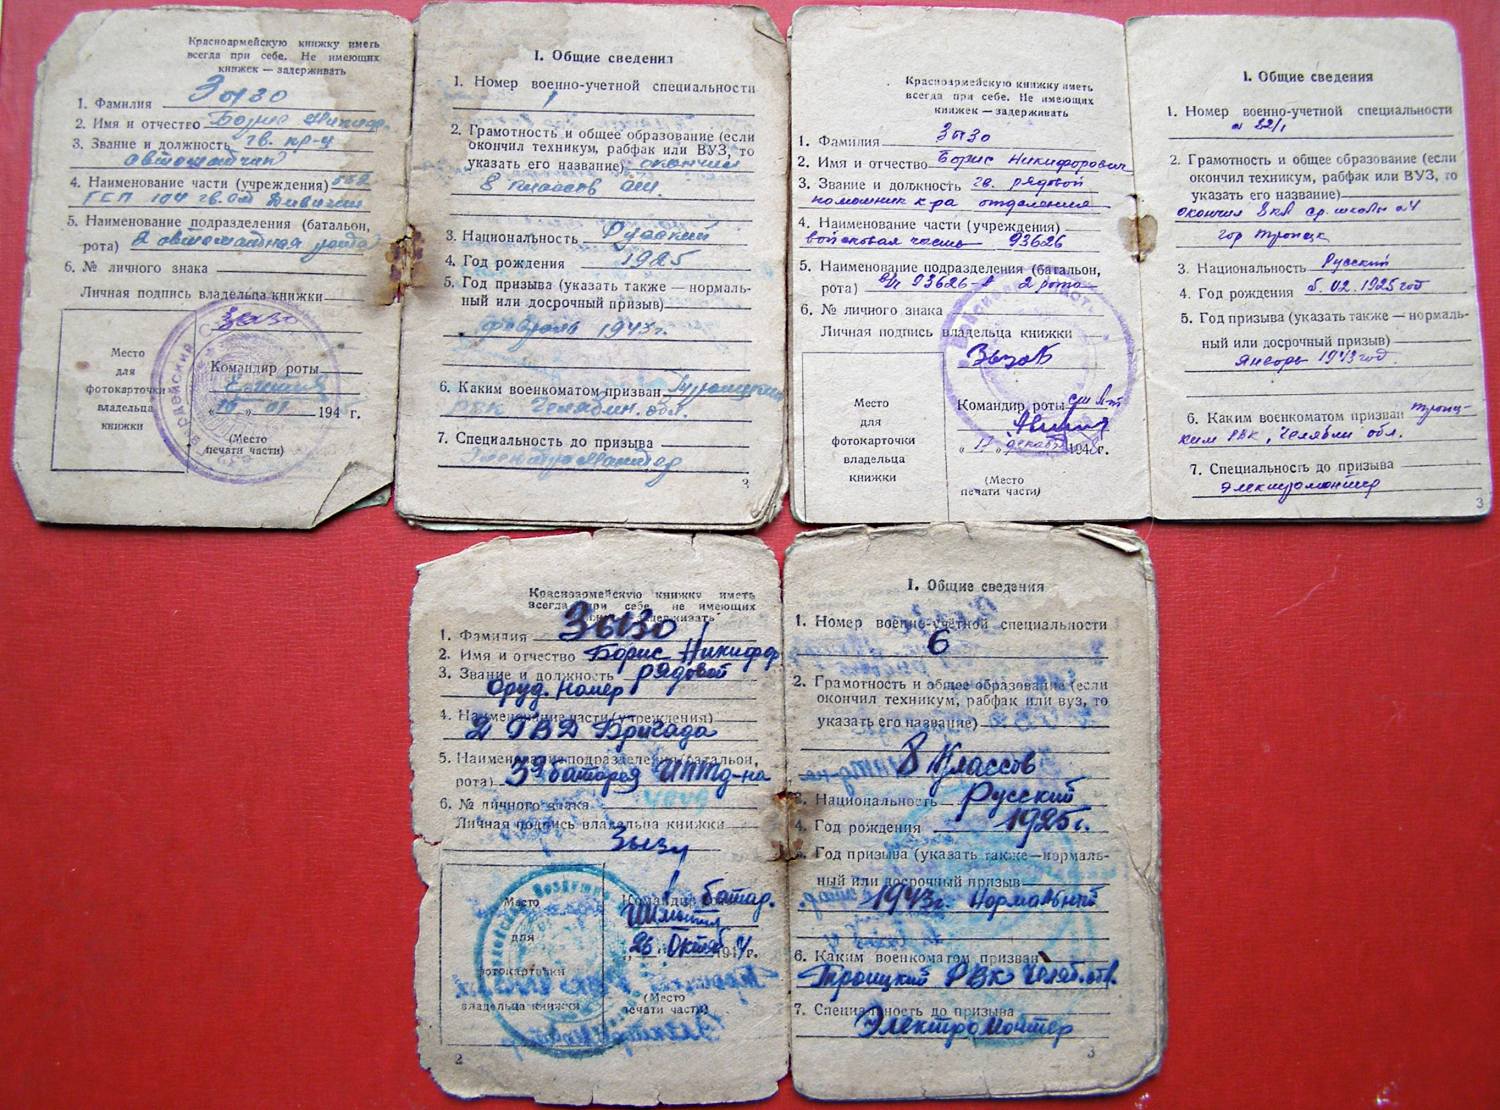 Красноармейскую книжку иметь
всегда при себе. Не имеющих
книжек — задерживать
1. Фамилия Зызо
2. Имя и отчество Борис Никифор.
3. Звание и должность гв. кр-ц
4. Наименование части (учреждения)
104 гв. Дивизии
5. Наименование подразделения (батальон,
рота) рота
6. № личного знака
Личная подпись владельца книжки
Зызо
Место
для
фотокарточки
владельца
книжки
Командир роты
194 г.
(Место
печати части)
I. Общие сведения
1. Номер военно-учетной специальности
2. Грамотность и общее образование (если
окончил техникум, рабфак или ВУЗ, то
указать его название) окончил
8 классов
3. Национальность Русский
4. Год рождения 1925
5. Год призыва (указать также — нормаль-
ный или досрочный призыв)
февраль 1943 г.
6. Каким военкоматом призван
РВК Челябин. обл.
7. Специальность до призыва
Электромонтер
3
Красноармейскую книжку иметь
всегда при себе. Не имеющих
книжек — задерживать
1. Фамилия Зызо
2. Имя и отчество Борис Никифорович
3. Звание и должность гв. рядовой
помошник к-ра отделения
4. Наименование части (учреждения)
войсковая часть 93626
5. Наименование подразделения (батальон,
рота) в/ч 93626-А 2 рота
6. № личного знака
Личная подпись владельца книжки
Место
для
фотокарточки
владельца
книжки
Командир роты
„17" декабря 194 г.
(Место
печати части)
I. Общие сведения
1. Номер военно-учетной специальности
2. Грамотность и общее образование (если
окончил техникум, рабфак или ВУЗ, то
указать его название)
окончил 8 кл ср. школы
гор Троицк
3. Национальность Русский
4. Год рождения 1925 год
5. Год призыва (указать также — нормаль-
ный или досрочный призыв)
январь 1943 год.
6. Каким военкоматом призван Троиц-
ким РВК, Челябин обл.
7. Специальность до призыва
электромонтер
3
Красноармейскую книжку иметь
всегда при себе, не имеющих
задерживать
1. Фамилия Зызо
2. Имя и отчество Борис Никифор
3. Звание и должность рядовой
оруд. номер
4. Наименование части (учреждения)
2 ГВД Бригада
5. Наименование подразделения (батальон,
рота) 3я батарея ИПТД-на
6. № личного знака
Личная подпись владельца книжки
Место
для
фотокарточки
владельца книжки
Командир батар.
„26" Октяб 194 г.
(Место
печати части)
2
I. Общие сведения
1. Номер военно-учётной специальности
6
2. Грамотность и общее образование (если
окончил техникум, рабфак или вуз, то
указать его название)
8 Классов
3. Национальность Русский
4. Год рождения 1925 г.
5. Год призыва (указать также — нормаль-
ный или досрочный призыв)
1943 г. Нормальный
6. Каким военкоматом призван
Троицкий РВК
7. Специальность до призыва
Электромонтер
3